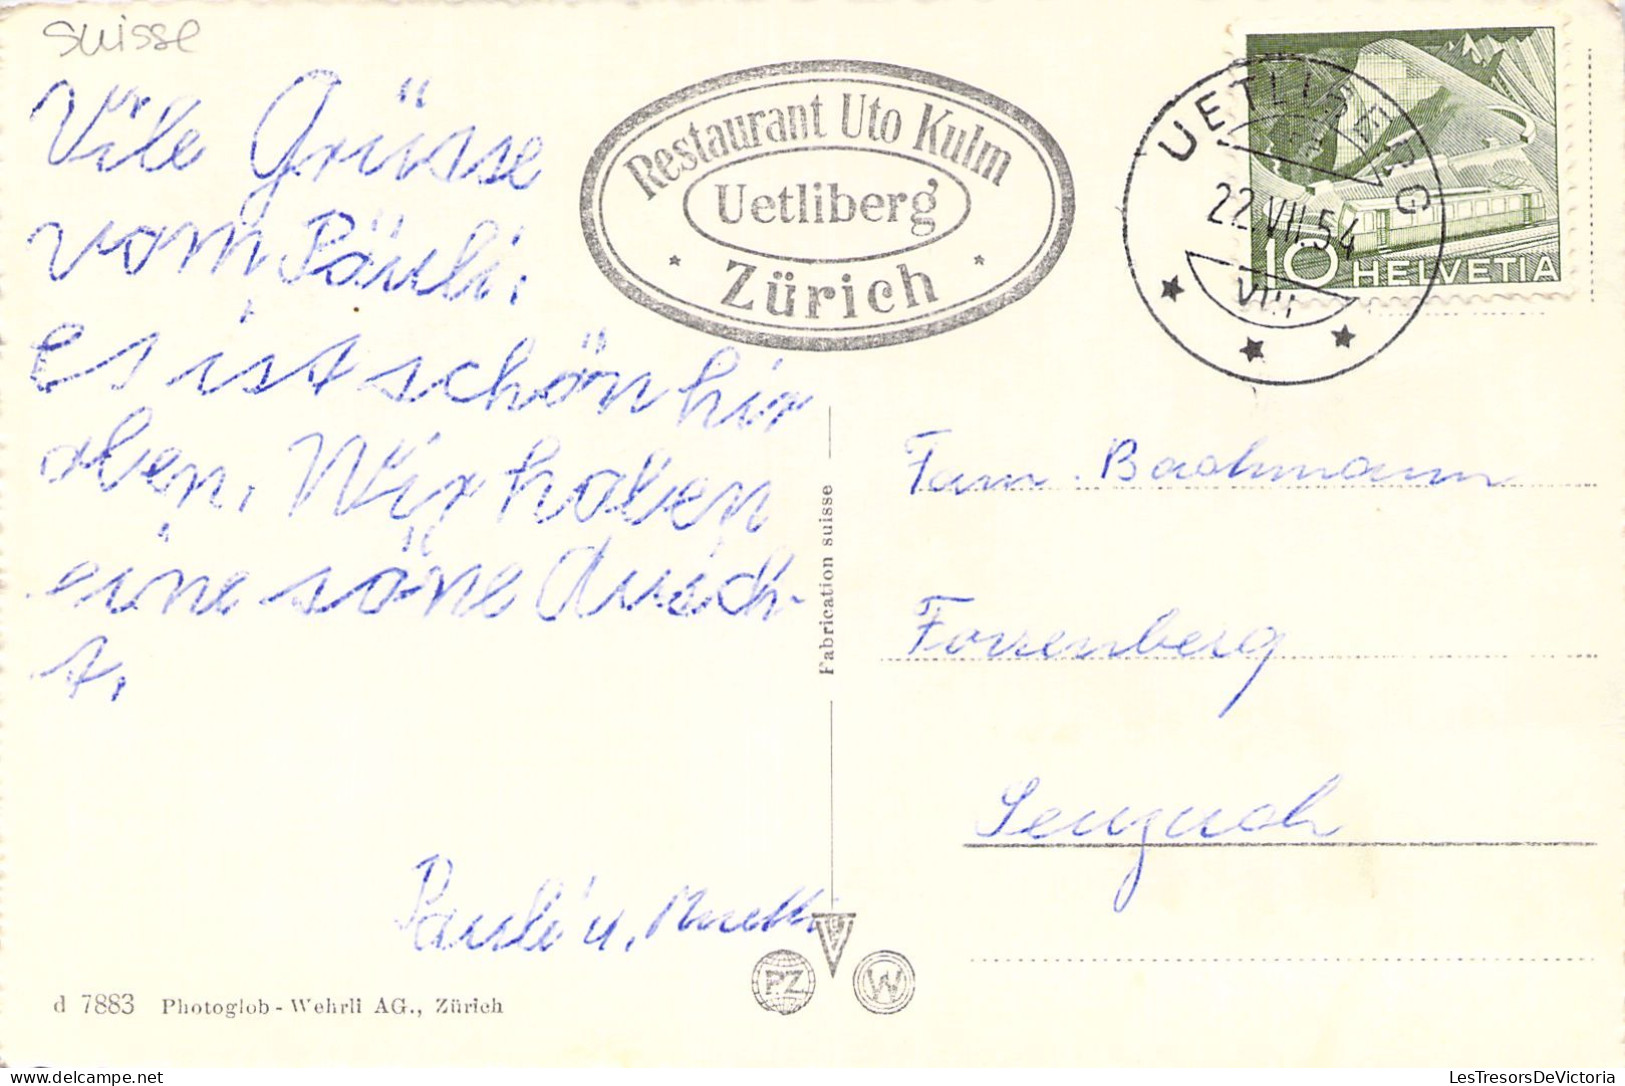 suisse
Vile Grüsse
vom Päuli.
es ist schön hir
oben. Wir haben
eine söne Ausich-
t.
Pauli u. Muetti
Restaurant Uto Kulm
Uetliberg
* Zürich *
UETLIBERG
22.VII.54
VIII
10 HELVETIA
Fam. Bachmann
Forrenberg
Seuzach
Fabrication suisse
PZ
W
d 7883 Photoglob-Wehrli AG., Zürich
LesTresorsDeVictoria